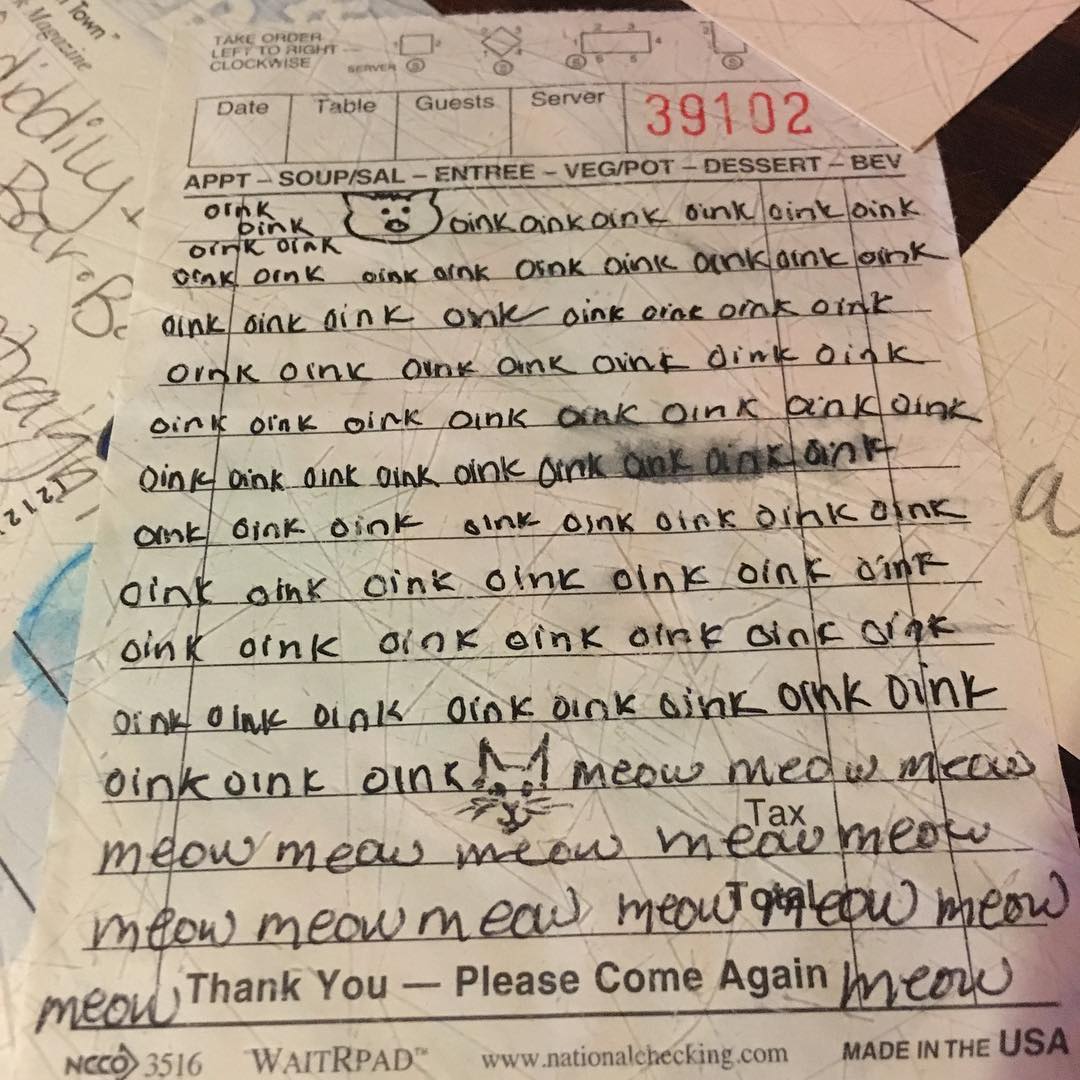 Town"
Magazine
TAKE ORDER
LEFT TO RIGHT
CLOCKWISE
SERVER
Date Table Guests Server 39102
APPT – SOUP/SAL – ENTREE – VEG/POT – DESSERT – BEV
oink
oink oink oink oink oink oink oink
oink oink
oink oink oink oink oink oink oink oink oink
oink oink oink oink oink oink oink oink
oink oink oink oink oink oink oink
oink oink oink oink oink oink oink oink
oink oink oink oink oink oink oink oink oink
oink oink oink oink oink oink oink oink
oink oink oink oink oink oink oink
oink oink oink oink oink oink oink
oink oink oink oink oink oink oink oink
oink oink oink meow meow meow
Tax
meow meow meow meow meow
meow meow meow meow Total meow meow
meow Thank You — Please Come Again meow
NCCO 3516 WAITRPAD™ www.nationalchecking.com MADE IN THE USA